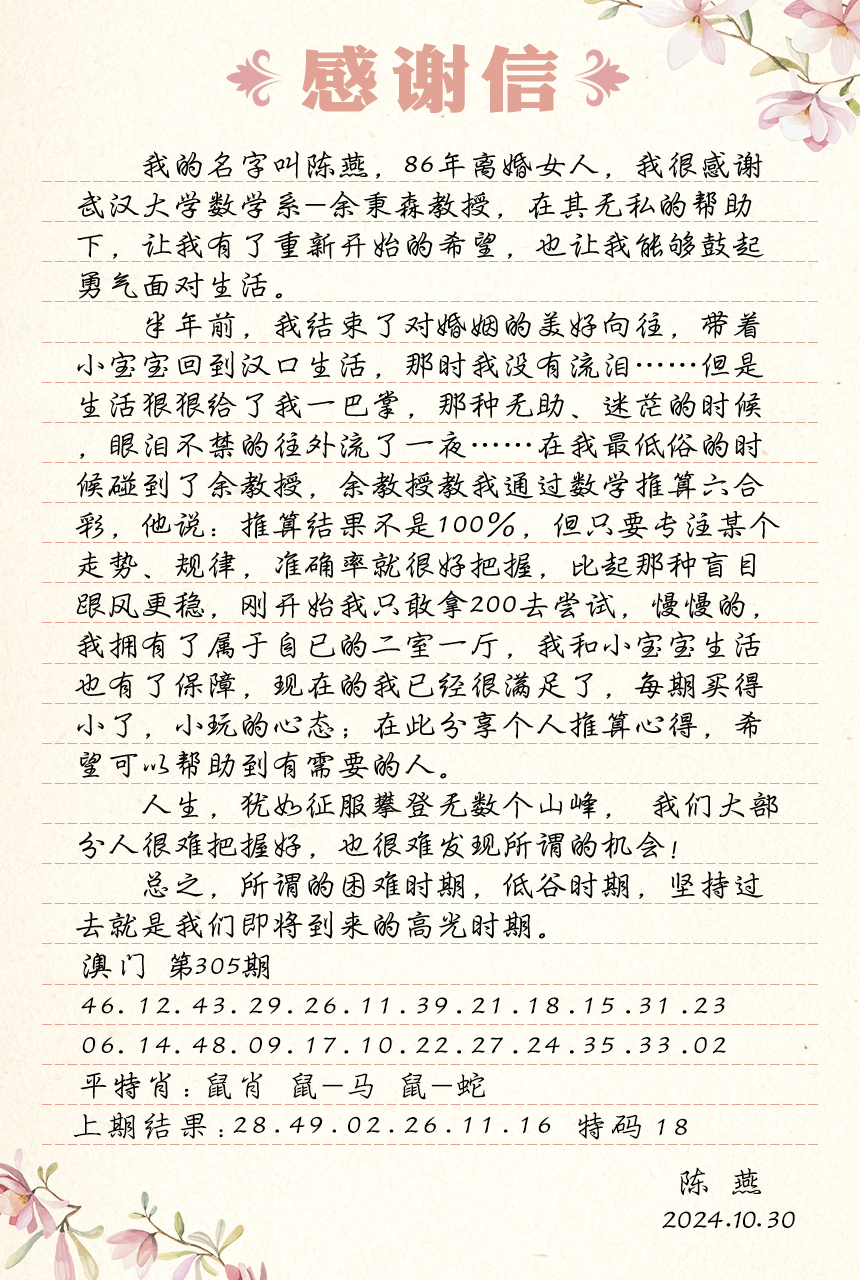 感谢信
我的名字叫陈燕，86年离婚女人，我很感谢
武汉大学数学系—余秉森教授，在其无私的帮助
下，让我有了重新开始的希望，也让我能够鼓起
勇气面对生活。
半年前，我结束了对婚姻的美好向往，带着
小宝宝回到汉口生活，那时我没有流泪……但是
生活狠狠给了我一巴掌，那种无助、迷茫的时候
，眼泪不禁的往外流了一夜……在我最低俗的时
候碰到了余教授，余教授教我通过数学推算六合
彩，他说：推算结果不是100%，但只要专注某个
走势、规律，准确率就很好把握，比起那种盲目
跟风更稳，刚开始我只敢拿200去尝试，慢慢的，
我拥有了属于自已的二室一厅，我和小宝宝生活
也有了保障，现在的我已经很满足了，每期买得
小了，小玩的心态；在此分享个人推算心得，希
望可以帮助到有需要的人。
人生，犹如征服攀登无数个山峰， 我们大部
分人很难把握好，也很难发现所谓的机会！
总之，所谓的困难时期，低谷时期，坚持过
去就是我们即将到来的高光时期。
澳门 第305期
46.12.43.29.26.11.39.21.18.15.31.23
06.14.48.09.17.10.22.27.24.35.33.02
平特肖：鼠肖 鼠—马 鼠—蛇
上期结果：28.49.02.26.11.16 特码 18
陈 燕
2024.10.30